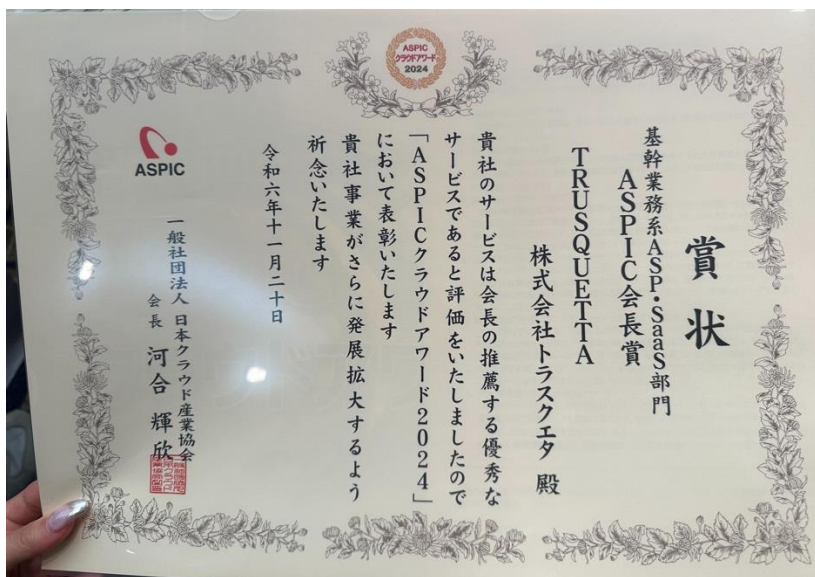 ASPIC
クラウドアワード
2024
賞状
基幹業務系ASP・SaaS部門
ASPIC会長賞
TRUSQUETTA
株式会社トラスクエタ 殿
貴社のサービスは会長の推薦する優秀な
サービスであると評価をいたしましたので
「ASPICクラウドアワード2024」
において表彰いたします
貴社事業がさらに発展拡大するよう
祈念いたします
令和六年十一月二十日
ASPIC
一般社団法人 日本クラウド産業協会
会長 河合 輝欣